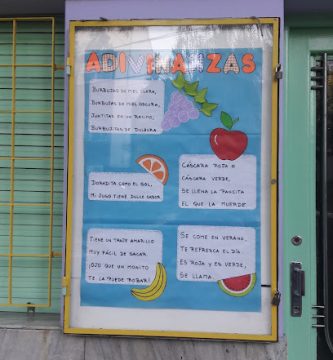 ADIVINANZAS
BURBUJAS DE MIEL CLARA,
BURBUJAS DE MIEL OSCURA,
JUNTITAS EN UN RACIMO,
BURBUJITAS DE DULZURA
CÁSCARA ROJA O
CÁSCARA VERDE,
SE LLENA LA PANCITA
EL QUE LA MUERDE
DORADITA COMO EL SOL,
MI JUGO TIENE DULCE SABOR
TIENE UN TRAJE AMARILLO
MUY FÁCIL DE SACAR
¡OJO QUE UN MONITO
TE LA PUEDE ROBAR!
SE COME EN VERANO,
TE REFRESCA EL DÍA.
ES ROJA Y ES VERDE,
SE LLAMA.